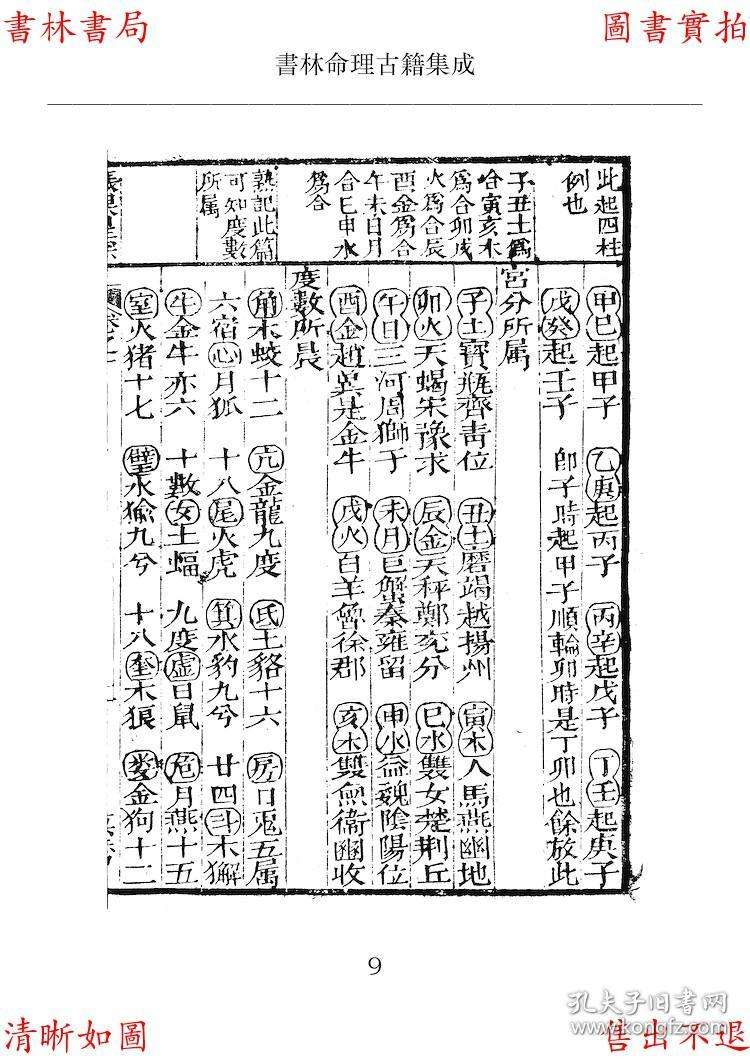 書林書局
圖書實拍
書林命理古籍集成
此起四柱
例也
子丑土爲
合寅亥木
爲合卯戌
火爲合辰
酉金爲合
午未日月
合巳申水
爲合
熟記此篇
可知度數
所属
甲巳起甲子 乙庚起丙子 丙辛起戊子 丁壬起庚子
戊癸起壬子 即子時起甲子順輪卯時是丁卯也餘放此
宮分所属
子土寶瓶齊青位 丑土磨竭越揚州 寅木人馬燕幽地
卯火天蝎宋豫求 辰金天秤鄭兖分 巳水雙女楚荆丘
午日三河周獅子 未月巨蟹秦雍留 申水益魏陰陽位
酉金趙冀是金牛 戌火白羊魯徐郡 亥木雙魚衞幽收
度數所晨
角木蛟十二 亢金龍九度 氐土貉十六 房日兎五属
六宿心月狐 十八尾火虎 箕水豹九兮 廿四斗木獬
牛金牛亦六 十數女土蝠 九度虚日鼠 危月燕十五
室火猪十七 壁水㺄九兮 十八奎木狼 婁金狗十二
9
孔夫子旧书网
清晰如圖
售出不退